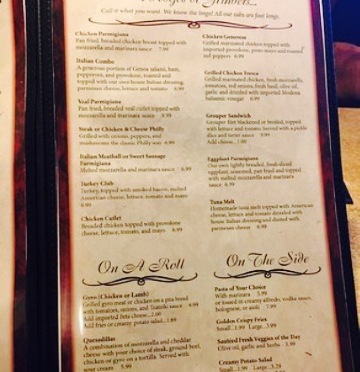 Call it what you want. We know the lingo! All our subs are foot longs.
Chicken Parmigiana
Pan fried, breaded chicken breast topped with
mozzarella and marinara sauce 7.99
Italian Combo
A generous portion of Genoa salami, ham,
pepperoni, and provolone, toasted and
topped with our own house Italian dressing,
parmesan cheese, lettuce and tomato 8.99
Veal Parmigiana
Pan fried, breaded veal cutlet topped with
mozzarella and marinara sauce
Steak or Chicken & Cheese Philly
Grilled with onions, peppers, and
mushrooms the classic Philly way
Italian Meatball or Sweet Sausage
Parmigiana
Melted mozzarella and marinara sauce
Turkey Club
Turkey, topped with smoked bacon, melted
American cheese, lettuce, tomato and mayo
Chicken Cutlet
Breaded chicken topped with provolone
cheese, lettuce, tomato, and mayo
On A Roll
Gyro (Chicken or Lamb)
Grilled gyro meat or chicken on a pita bread
with tomatoes, onions, and Tzatziki sauce
Add imported feta cheese...
Add fries or creamy potato salad...
Quesadillas
A combination of mozzarella and cheddar
cheese with your choice of steak, ground beef,
chicken or gyro on a tortilla. Served with
sour cream
Chicken Generosa
Grilled marinated chicken topped with
imported provolone, pesto mayo and roasted
red peppers
Grilled Chicken Fresca
Grilled marinated chicken, fresh mozzarella,
tomatoes, red onions, fresh basil, olive oil,
garlic and drizzled with imported Modena
balsamic vinegar
Grouper Sandwich
Grouper filet blackened or broiled, topped
with lettuce and tomato. Served with a pickle
slice and tartar sauce
Add cheese...
Eggplant Parmigiana
Our own lightly breaded, fresh sliced
eggplant, seasoned, pan fried and topped
with melted mozzarella and marinara
sauce
Tuna Melt
Homemade tuna melt topped with American
cheese, lettuce and tomato drizzled with
house Italian dressing and dusted with
parmesan cheese
On The Side
Pasta of Your Choice
With marinara 5.99
or tossed in creamy alfredo, vodka sauce,
bolognese, or aioli 7.99
Golden Crispy Fries
Small... Large...
Sautéed Fresh Veggies of the Day
Olive oil, garlic and herbs
Creamy Potato Salad
Small... Large...